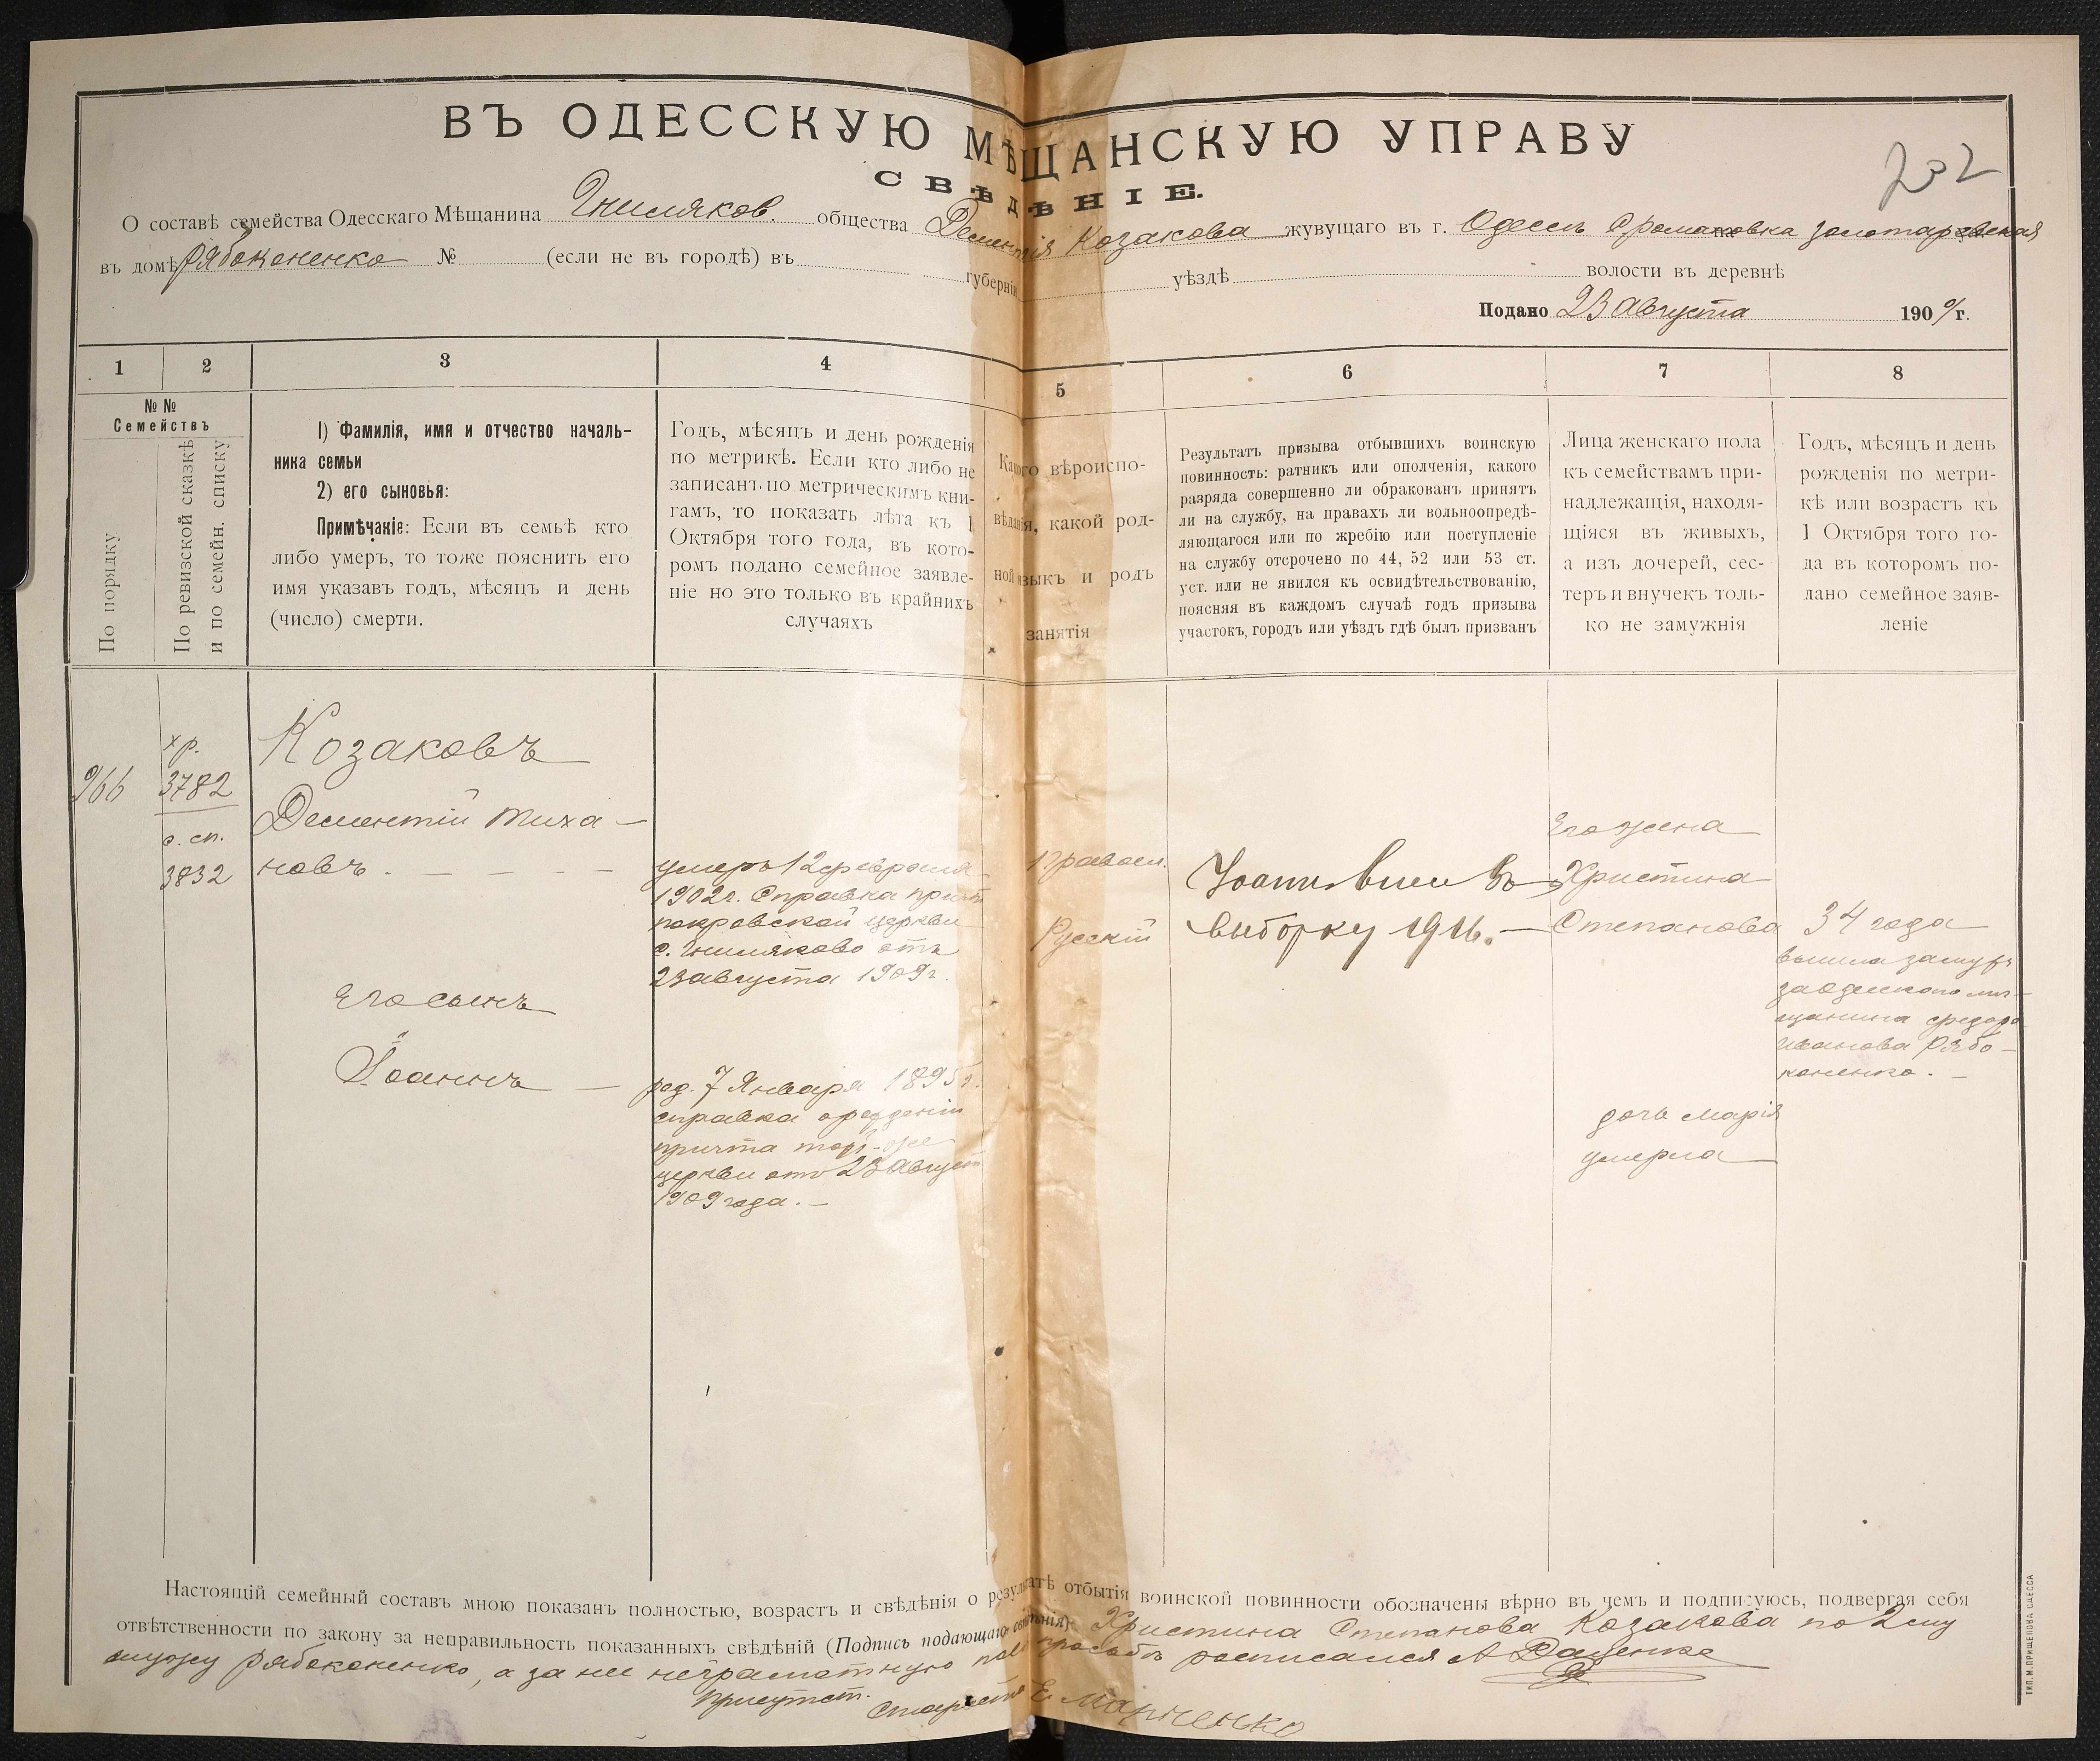 ВЪ ОДЕССКУЮ МѢЩАНСКУЮ УПРАВУ
202
СВѢДѢНІЕ.
О составѣ семейства Одесскаго Мѣщанина Гниляков. общества Дементія Козакова жувущаго въ г. Одессѣ Романовка
въ домѣ Рябоконенко № (если не въ городѣ) въ губерніи уѣздѣ волости въ деревнѣ
Подано 23 Августа 1909 г.
1 2 3 4 5 6 7 8
№№ Семействъ
По порядку
По ревизской сказкѣ и по семейн. списку
1) Фамилія, имя и отчество началь-
ника семьи
2) его сыновья:
Примѣчакіе: Если въ семьѣ кто
либо умеръ, то тоже пояснить его
имя указавъ годъ, мѣсяцъ и день
(число) смерти.
Годъ, мѣсяцъ и день рожденія
по метрикѣ. Если кто либо не
записанъ по метрическимъ кни-
гамъ, то показать лѣта къ 1
Октября того года, въ кото-
ромъ подано семейное заявле-
ніе но это только въ крайнихъ
случаяхъ
Какого вѣроиспо-
вѣданія, какой род-
ной языкъ и родъ
занятія
Результатъ призыва отбывшихъ воинскую
повинность: ратникъ или ополченія, какого
разряда совершенно ли обракованъ принятъ
ли на службу, на правахъ ли вольноопредѣ-
ляющагося или по жребію или поступленіе
на службу отсрочено по 44, 52 или 53 ст.
уст. или не явился къ освидѣтельствованію,
поясняя въ каждомъ случаѣ годъ призыва
участокъ, городъ или уѣздъ гдѣ былъ призванъ
Лица женскаго пола
къ семействамъ при-
надлежащія, находя-
щіяся въ живыхъ,
а изъ дочерей, сес-
теръ и внучекъ толь-
ко не замужнія
Годъ, мѣсяцъ и день
рожденія по метри-
кѣ или возрастъ къ
1 Октября того го-
да въ которомъ по-
дано семейное заяв-
леніе
966
хр.
3782
с. сп.
3832
Козаковъ
Дементій Тиха-
новъ.
умеръ 12 февраля
1902 г. Справка причта
покровской церкви
с. Гниляково отъ
23 августа 1909 г.
Его сынъ
Іоаннъ
род. 7 Января 1895 г.
справка о рожденіи
причта той-же
церкви отъ 23 август
1909 года.
Правосл.
Русскій
Іоанн внесен въ
выборку 1916.
Его жена
Христина
Степанова
34 года
вышла замуж
за Одесскаго мѣ-
щанина Федора
Иванова Рябо-
коненко.
дочь Марія
умерла
Настоящій семейный составъ мною показанъ полностью, возрастъ и свѣдѣнія о результатѣ отбытія воинской повинности обозначены вѣрно въ чемъ и подписуюсь, подвергая себя
ответственности по закону за неправильность показанныхъ свѣдѣній (Подпись подающаго свѣдѣнія) Христина Степанова Козакова по 2 му
мужу Рябоконенко, а за нее неграмотную по просьбѣ росписался А Даценко
Присутст. Староста Е. Марченко
ТИП. М. ПРИЩЕПОВА ОДЕССА